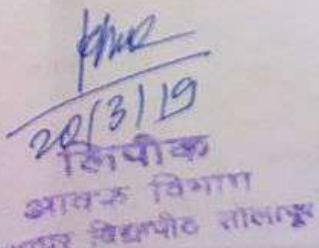 20/3/19
लिपीक
आवक विभाग
विद्यापीठ सोलापूर